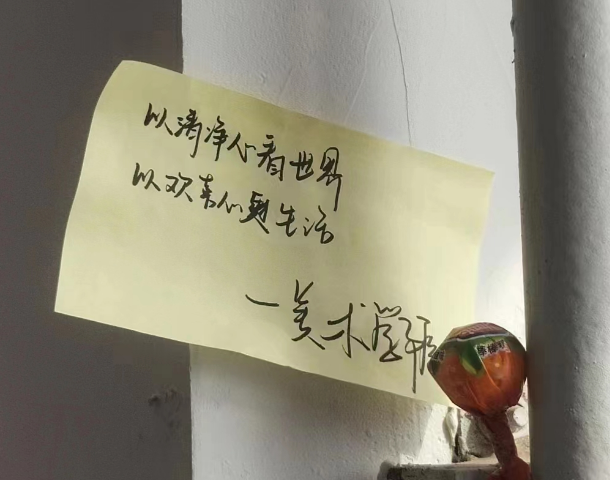 以清净心看世界
以欢喜心生活
—美术学院